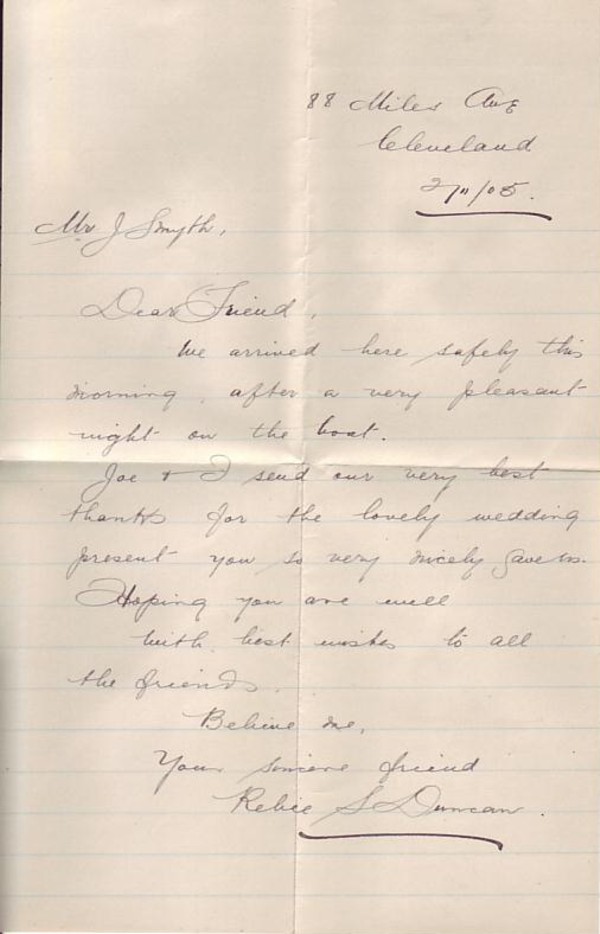 88 Miles Ave
Cleveland
/05.
Mr J Smyth,
Dear Friend,
We arrived here safely this
morning, after a very pleasant
night on the boat.
Joe & I send our very best
thanks for the lovely wedding
present you so very nicely gave us.
Hoping you are well
with best wishes to all
the friends.
Believe me,
Your sincere friend
S Duncan.